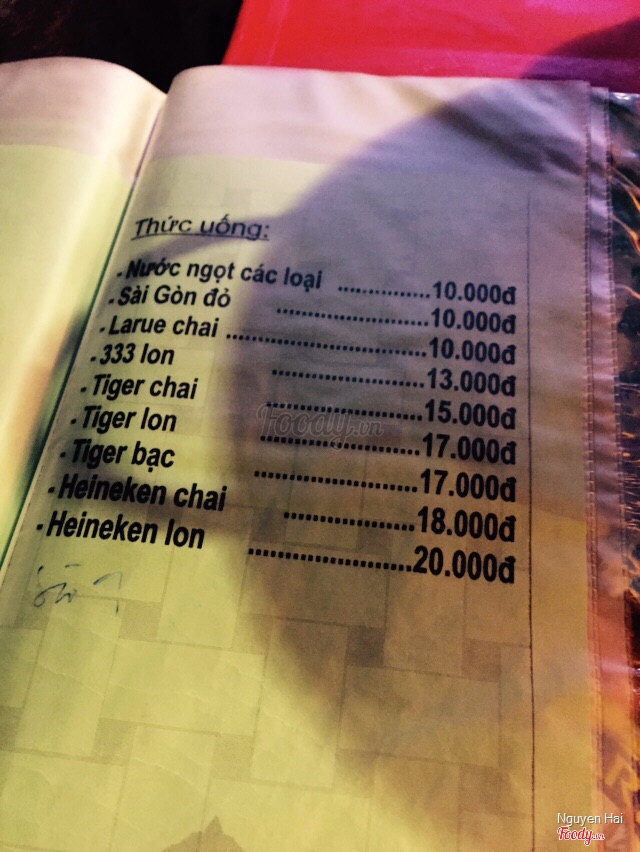 Thức uống:
- Nước ngọt các loại ................10.000đ
- Sài Gòn đỏ ..........................10.000đ
- Larue chai ..................................10.000đ
- 333 lon ..........................13.000đ
- Tiger chai ..........................15.000đ
- Tiger lon ..........................17.000đ
- Tiger bạc ..........................17.000đ
- Heineken chai .....................18.000đ
- Heineken lon ..........................20.000đ
Foody.vn
Nguyen Hai
Foody.vn